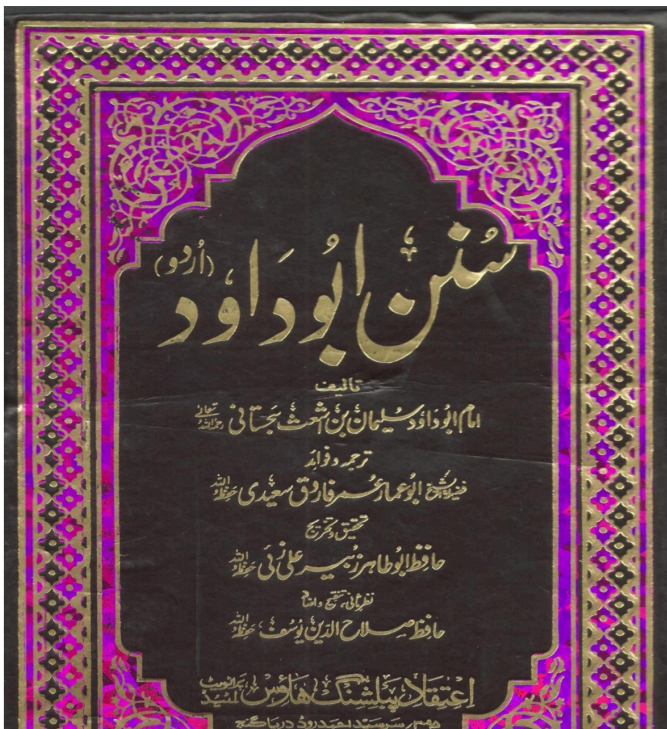 سُنن ابُو دَاوٗد (اُردو)
تالیف
امام ابو داوٗد سلیمان بن اشعث سجستانی رحمہ اللہ تعالیٰ
ترجمہ و فوائد
فضیلۃ الشیخ ابو عمار عمر فاروق سعیدی حفظہ اللہ
تحقیق و تخریج
حافظ ابو طاہر زبیر علی زئی حفظہ اللہ
نظرثانی، تنقیح و اضافہ
حافظ صلاح الدین یوسف حفظہ اللہ
اعتقاد پبلشنگ ہاؤس پرائیویٹ لمیٹڈ
سرسید احمد روڈ دریا گنج